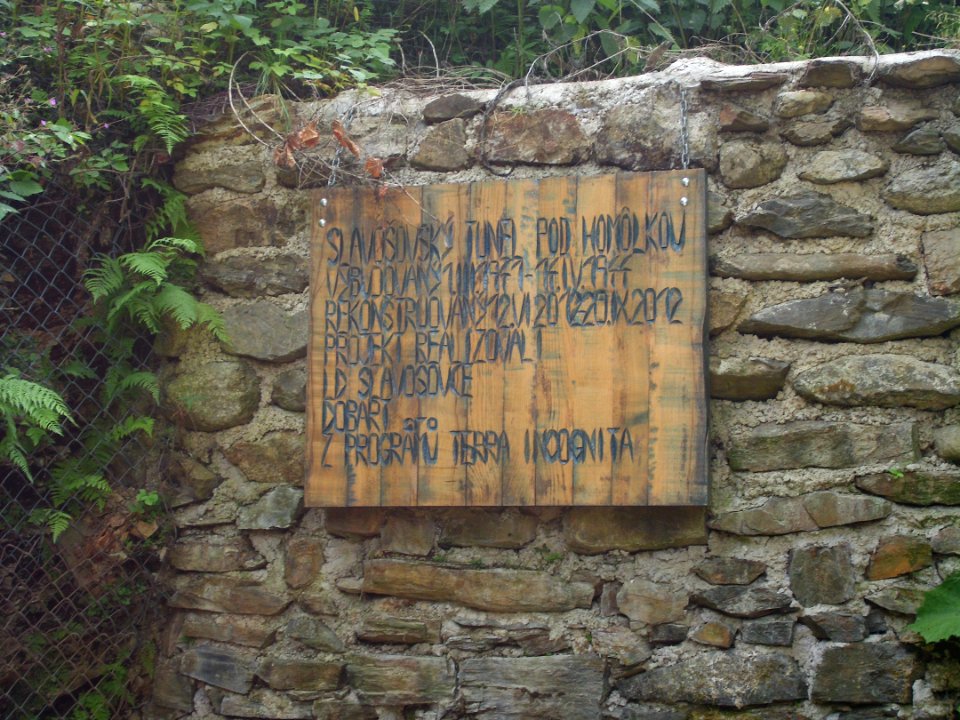 SLAVOŠOVSKÝ TUNEL POD HOMÔLKOU
VYBUDOVANÝ 1.III.1941-14.IV.1944
REKONŠTRUOVANÝ 12.VI.2012-20.IX.2012
PROJEKT REALIZOVALI
I.D. SLAVOŠOVCE
DOBART
Z PROGRAMU TERRA INCOGNITA